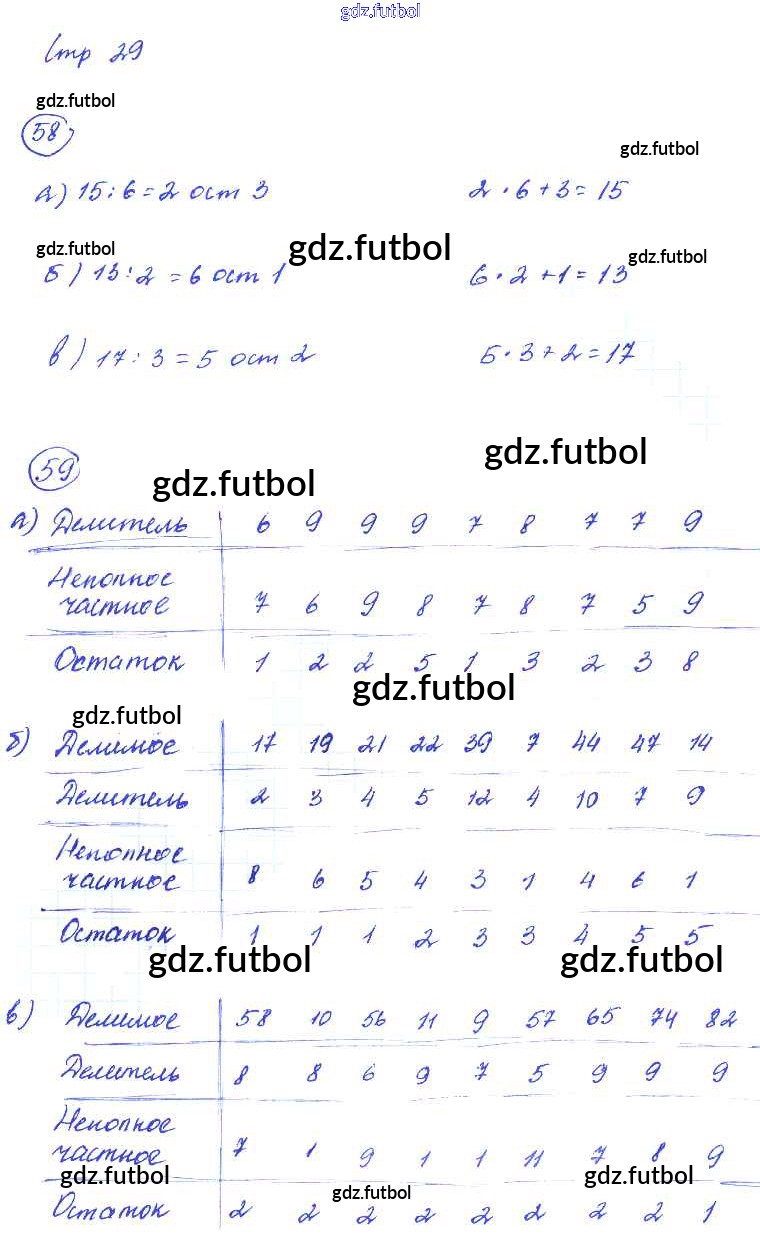 gdz.futbol
Стр 29
gdz.futbol
58
gdz.futbol
а) 15:6=2 ост 3 2·6+3=15
gdz.futbol gdz.futbol gdz.futbol
б) 13:2=6 ост 1 6·2+1=13
в) 17:3=5 ост 2 5·3+2=17
gdz.futbol
59
gdz.futbol
а) Делитель 6 9 9 9 7 8 7 7 9
Неполное
частное 7 6 9 8 7 8 7 5 9
Остаток 1 2 2 5 1 3 2 3 8
gdz.futbol
gdz.futbol
б) Делимое 17 19 21 22 39 7 44 47 14
Делитель 2 3 4 5 12 4 10 7 9
Неполное
частное 8 6 5 4 3 1 4 6 1
Остаток 1 1 1 2 3 3 4 5 5
gdz.futbol gdz.futbol
в) Делимое 58 10 56 11 9 57 65 74 82
Делитель 8 8 6 9 7 5 9 9 9
Неполное
частное 7 1 9 1 1 11 7 8 9
gdz.futbol gdz.futbol gdz.futbol
Остаток 2 2 2 2 2 2 2 2 1